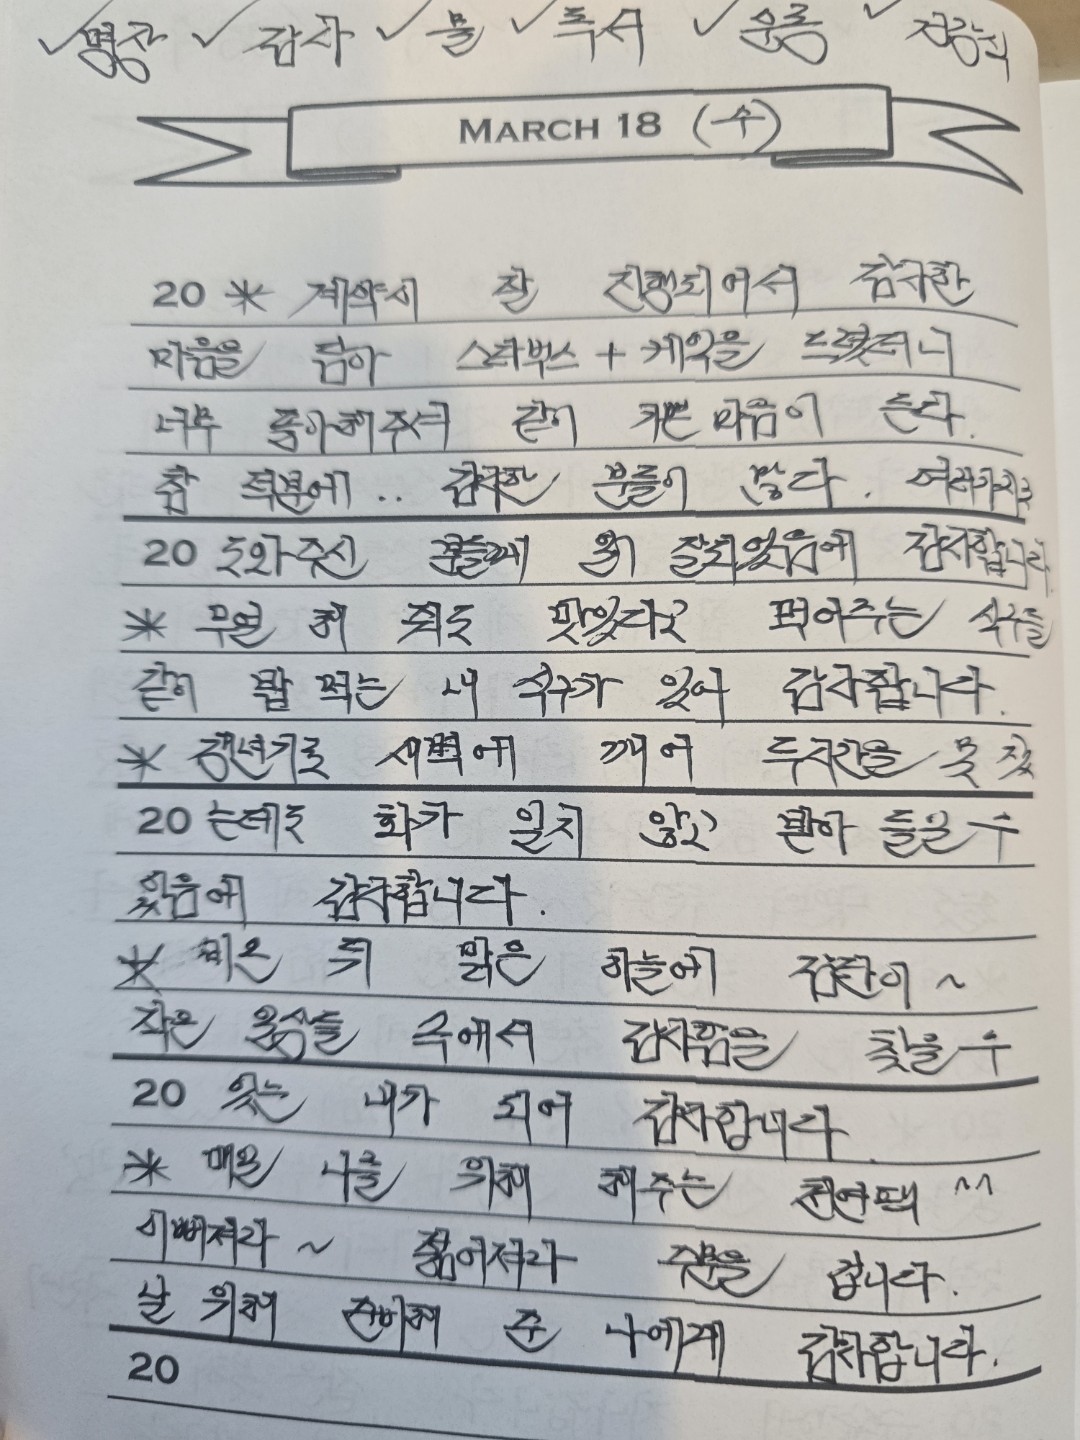 ✓명상 ✓감사 ✓물 ✓독서 ✓운동 ✓저강식
MARCH 18 (수)
20 * 계약서 잘 진행되어서 감사한
마음을 담아 스타벅스 + 케익을 드렸더니
너무 좋아해주셔 같이 기쁜 마음이 든다.
참 덕분에.. 감사한 분들이 많다. 여러가지로
20 도와주신 분들께 일이 잘되었음에 감사합니다
* 무얼 해 줘도 맛있다고 먹어주는 식구들
같이 밥 먹는 내 식구가 있어 감사합니다.
* 갱년기로 새벽에 깨어 두시간을 못 잤
20 는데도 화가 일지 않고 받아 들일 수
있음에 감사합니다.
* 비온 뒤 맑은 하늘에 감탄이 ~
작은 일상들 속에서 감사함을 찾을 수
20 있는 내가 되어 감사합니다.
* 매일 나를 위해 해주는 천연팩 ^^
이뻐져라 ~ 젊어져라 주문을 겁니다.
날 위해 준비해 준 나에게 감사합니다.
20